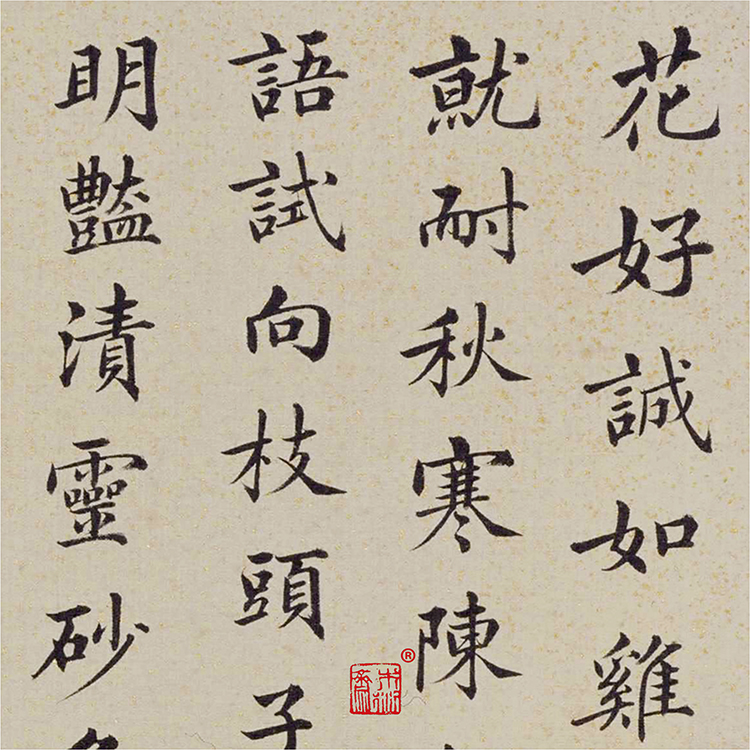 花好誠如雞
就耐秋寒陳
語試向枝頭子
明豔漬靈砂